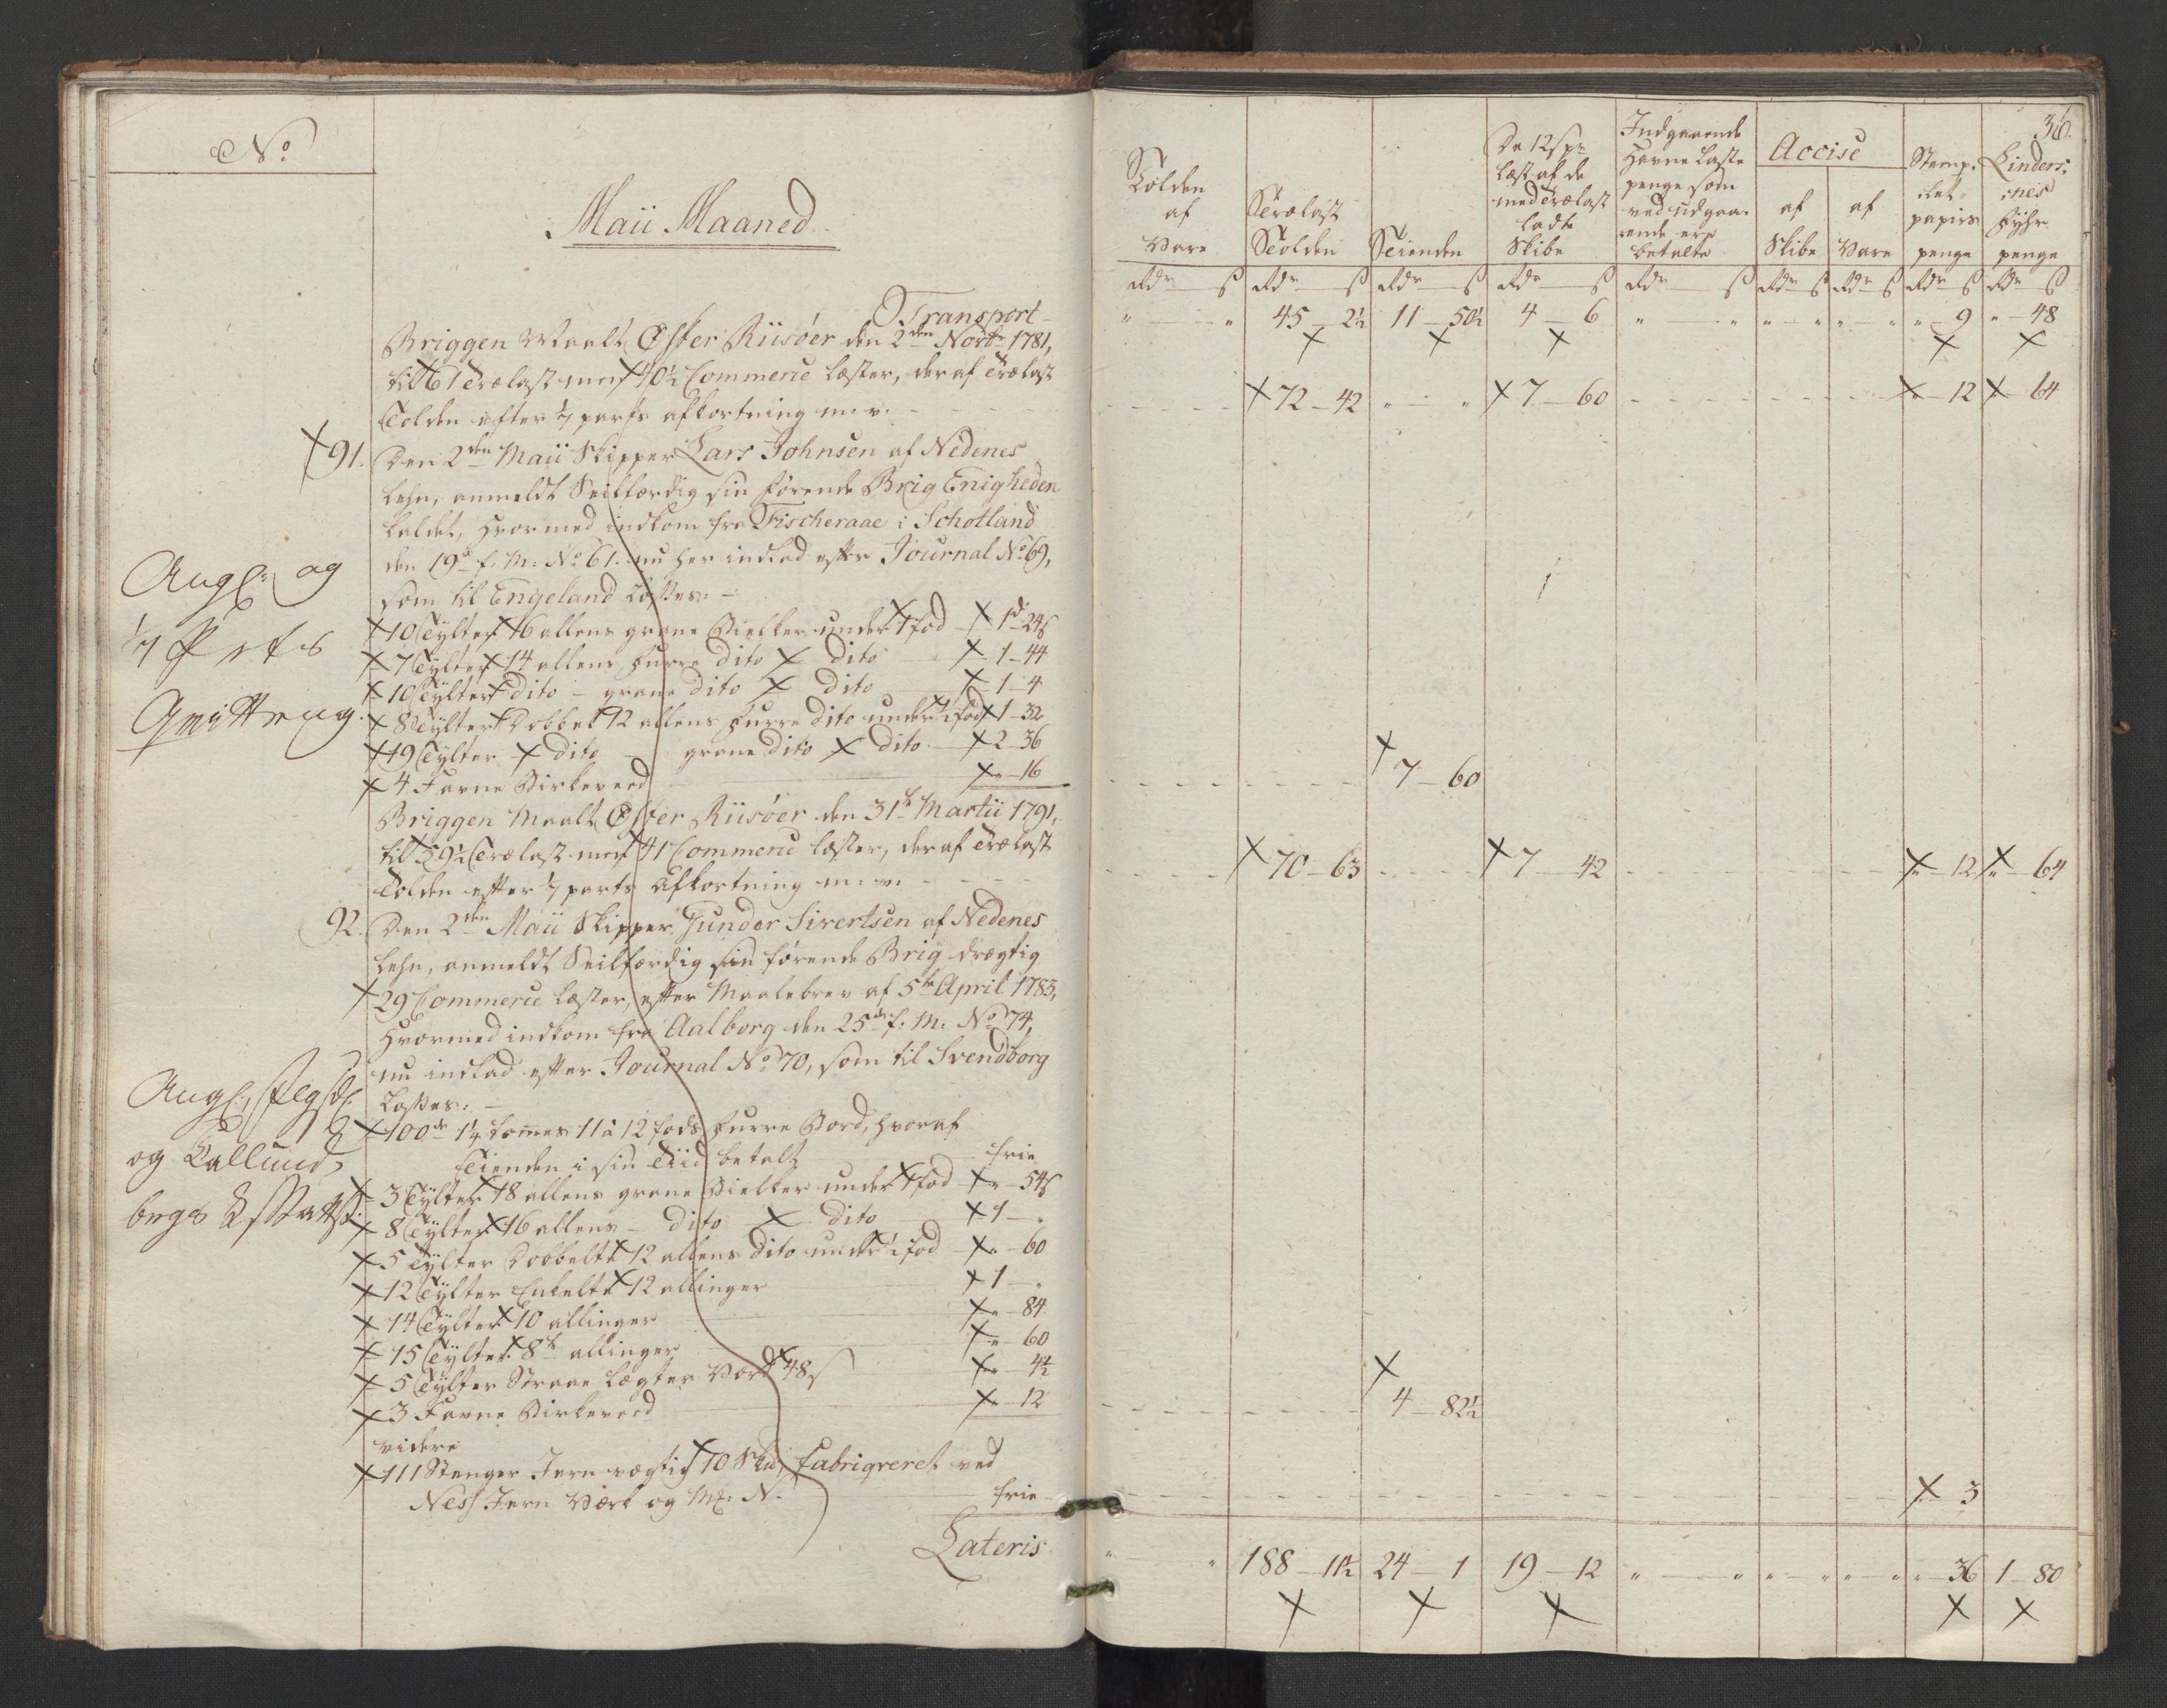 No
Maii Maaned
Transport
Briggen Maalt Øster Riisöer den 2den Novbr 1781,
til 61 Trælast men 40½ Commerce læster, der af Trælast
Tolden efter 1/7 parts afkortning m: v:
91. Den 2den Maii Skipper Lars Johnsen af Nedenes
Lehn, anmeldt Seilfærdig sin førende Brig Enigheden
kaldet, hvormed indkom fra Fischeraae i Schotland
den 19de f: M: No 61. nu her indlad efter Journal No 69,
som til Engeland losses:
Angl: og
1/7 Parts
Qvittrng.
10 Tylter 16 allens grane Bielker under 1 fod 1d 24s
7 Tylter 14 allens furre dito dito 1 - 44
10 Tylter dito - grane dito dito 1 - 4
8 Tylter Dobbelt 12 allens furre dito under ½ fod 1 - 32
19 Tylter dito - grane dito dito 2 - 36
4 Favne Birkeved " - 16
Briggen Maalt Øster Riisöer den 31te Martii 1791,
til 59½ Trælast men 41 Commerce læster, der af Trælast
Tolden efter 1/7 parts Afkortning m: v:
92. Den 2den Maii Skipper Gunder Sivertsen af Nedenes
Lehn, anmeldt Seilfærdig sin førende Brig drægtig
29 Commerce læster, efter Maalebrev af 5te April 1783,
hvormed indkom fra Aalborg den 25de f: M: No 74,
nu indlad efter Journal No 70, som til Svendborg
losses:
og Callund
borgs
100de 1¼ tommes 11 à 12 fods furre Bord, hvoraf
Tienden i sin Tiid betalt frie
3 Tylter 18 allens grane Bielker under 1 fod " - 54s
8 Tylter 16 allens - dito dito 1 - "
5 Tylter Dobbelt 12 allens dito under ½ fod " - 60
12 Tylter Enkelt 12 allinger 1 - "
14 Tylter 10 allinger " - 84
15 Tylter 8te allinger " - 60
5 Tylter Straae Lægter Værd 48s " - 4½
3 Favne Birkeved " - 12
videre
111 Stænger Jern vægtig 10 Sk℔, fabriqveret ved
Ness Jern Værk og Mk: N. frie
Lateris
36.
Tolden
af
Vare
Trælast
Tolden
Tienden
De 12s pr
læst af de
med Trælast
ladte
Skibe
Indgaaende
Havne laste
penge som
ved udgaa-
ende ere
betalte
Accise
af
Skibe
af
Vare
Stemp-
let
papirs
penge
Linders-
nes
Fyhr
penge
Rdr s Rdr s Rdr s Rdr s Rdr s Rdr s Rdr s Rdr s Rdr s
" " 45 - 2½ 11 - 50½ 4 - 6 " " " " " " " - 9 " - 48
72 - 42 " " 7 - 60 " - 12 " - 64
7 - 60
70 - 63 7 - 42 " - 12 " - 64
4 - 82½
3
" " 188 - 11½ 24 - 1 19 - 12 " " " " " " " - 36 1 - 80